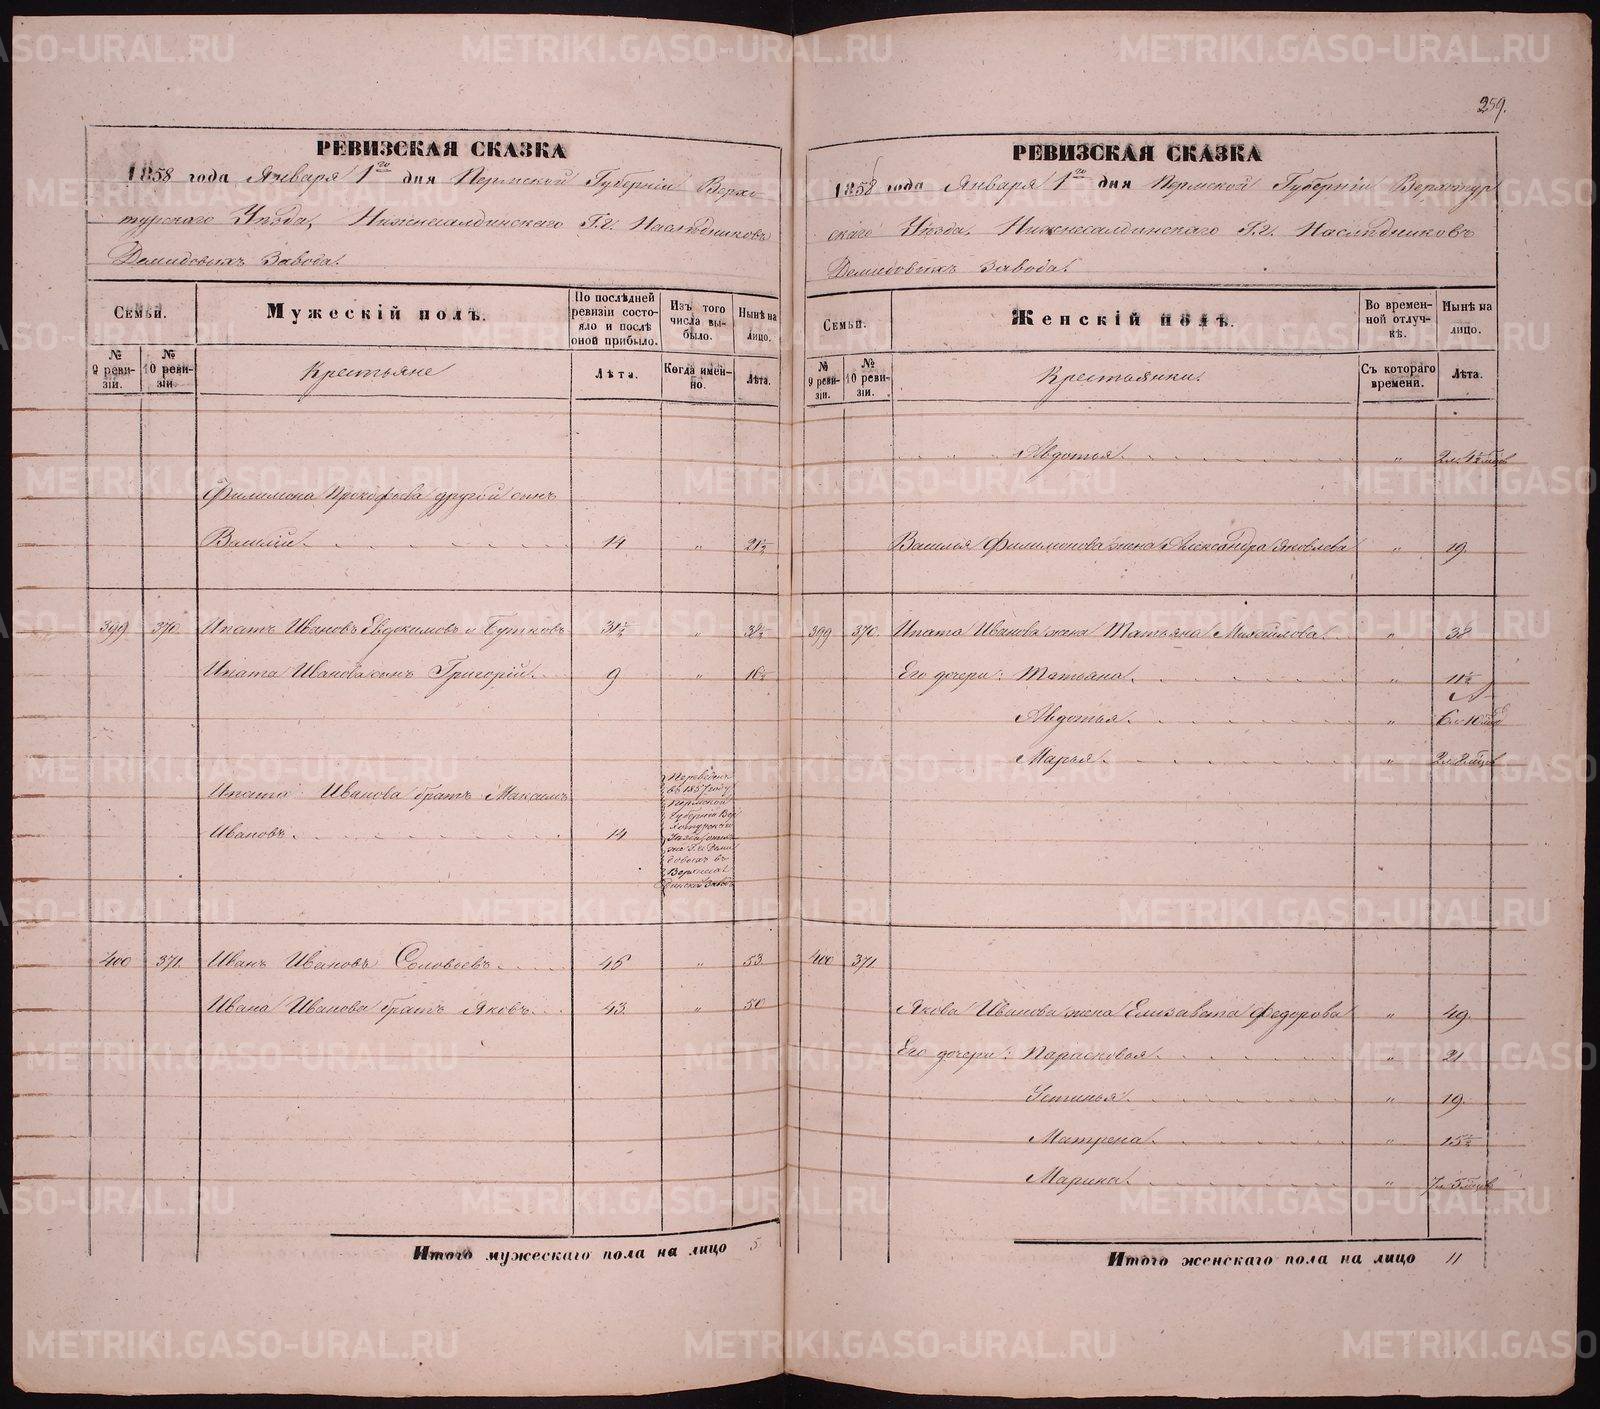 259.
РЕВИЗСКАЯ СКАЗКА
1858 года Января 1го дня Пермской Губерніи Верхо
турскаго Уѣзда, Нижнесалдинскаго Г.г. Наслѣдниковъ
Демидовыхъ Завода.
Семьи.
№ 9 ревизіи.
№ 10 ревизіи.
Мужескій полъ.
Крестьяне
По послѣдней ревизіи состояло и послѣ оной прибыло.
Лѣта.
Изъ того числа выбыло.
Когда именно.
Нынѣ на лицо.
Лѣта.
Филимона Прокофьева другой сынъ
Василій 14 " 21½
399 370 Ипатъ Ивановъ Евдокимовъ и Бутковъ 31½ "
Ипата Иванова сынъ Григорій. 9 " 16½
Ипата Иванова братъ Максимъ
Ивановъ. 14
Переведенъ
въ 1857 году
Пермской
Губерніи Вер
хотурскаго
Уѣзда
же Г.г. Деми
довыхъ въ
Верхнесал
динской Заводъ
400 371. Иванъ Ивановъ Соловьевъ. 46 " 53.
Ивана Иванова братъ Яковъ. 43. " 50
Итого мужескаго пола на лицо 5
РЕВИЗСКАЯ СКАЗКА
1858 года Января 1го дня Пермской Губерніи Верхотур
скаго Уѣзда, Нижнесалдинскаго Г.г. Наслѣдниковъ
Демидовыхъ Завода.
Семьи.
№ 9 ревизіи.
№ 10 ревизіи.
Женскій полъ.
Крестьянки.
Во временной отлучкѣ.
Съ котораго времени.
Нынѣ на лицо.
Лѣта.
Авдотья. "
Василья Филимонова жена Александра Яковлева " 19.
399 370. Ипата Иванова жена Татьяна Михайлова. " 38
Его дочери: Татьяна. " 11½
Авдотья. "
Марья. "
400 371.
Якова Иванова жена Елизавета Федорова " 49.
Его дочери: Парасковья. " 21
Устинья. " 19.
Матрена. " 15½
Марина. " 7 л. 5 мцов
Итого женскаго пола на лицо 11
METRIKI.GASO-URAL.RU